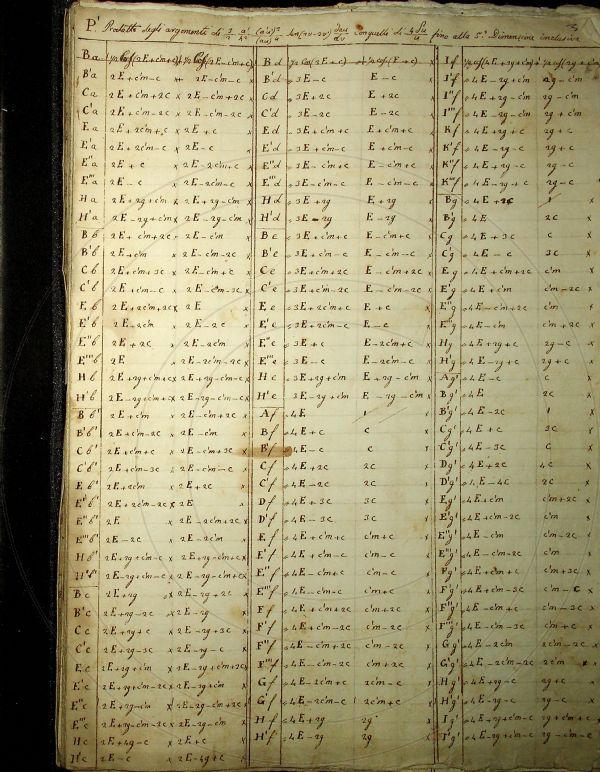 P. Prodotto degli argomenti di 3/2 a'/h² (a'u')³/(au)⁴ sen(2v-2v') du/dv con quelli di 4 δu/u fino alla 5.ª Dimensione inclusiva
B'a 2E+c'm-c × 2E-c'm-c ×
Ca 2E+c'm+2c × 2E-c'm+2c ×
C'a 2E+c'm-2c × 2E-c'm-2c ×
Ea 2E+2c'm+c × 2E+c ×
E'a 2E+2c'm-c × 2E-c ×
E''a 2E+c × 2E-2c'm+c ×
E'''a 2E-c × 2E-2c'm-c ×
Ha 2E+2g+c'm × 2E+2g-c'm ×
H'a 2E-2g+c'm × 2E-2g-c'm ×
Bb 2E+c'm+2c × 2E-c'm ×
B'b 2E+c'm × 2E-c'm-2c ×
Cb 2E+c'm+3c × 2E-c'm+c ×
C'b 2E+c'm-c × 2E-c'm-3c ×
Eb 2E+2c'm+2c × 2E ×
E'b 2E+2c'm × 2E-2c ×
E''b 2E+2c × 2E-2c'm ×
E'''b 2E × 2E-2c'm-2c ×
Hb 2E+2g+c'm+c × 2E+2g-c'm-c ×
H'b 2E-2g+c'm+c × 2E-2g-c'm-c ×
Bb' 2E+c'm × 2E-c'm+2c ×
B'b' 2E+c'm-2c × 2E-c'm ×
Cb' 2E+c'm+c × 2E-c'm+3c ×
C'b' 2E+c'm-3c × 2E-c'm-c ×
Eb' 2E+2c'm × 2E+2c ×
E'b' 2E+2c'm-2c × 2E ×
E''b' 2E × 2E-2c'm+2c ×
E'''b' 2E-2c × 2E-2c'm ×
Hb' 2E+2g+c'm-c × 2E+2g-c'm+c ×
H'b' 2E-2g+c'm-c × 2E-2g-c'm+c ×
Bc 2E+2g × 2E-2g+2c ×
B'c 2E+2g-2c × 2E-2g ×
Cc 2E+2g+c × 2E-2g+3c ×
C'c 2E+2g-3c × 2E-2g-c ×
Ec 2E+2g+c'm × 2E-2g+c'm+2c ×
E'c 2E+2g+c'm-2c × 2E-2g+c'm ×
E''c 2E+2g-c'm × 2E-2g-c'm+2c ×
E'''c 2E+2g-c'm-2c × 2E-2g-c'm ×
Hc 2E+4g-c × 2E+c ×
H'c 2E-c × 2E-4g+c ×
B'd 3E-c E-c ×
Cd 3E+2c E+2c ×
C'd 3E-2c E-2c ×
Ed 3E+c'm+c E+c'm+c ×
E'd 3E+c'm-c E+c'm-c ×
E''d 3E-c'm+c E-c'm+c ×
E'''d 3E-c'm-c E-c'm-c ×
Hd 3E+2g E+2g ×
H'd 3E-2g E-2g ×
Be 3E+c'm+c E-c'm+c ×
B'e 3E+c'm-c E-c'm-c ×
Ce 3E+c'm+2c E-c'm+2c ×
C'e 3E+c'm-2c E-c'm-2c ×
Ee 3E+2c'm+c E+c ×
E'e 3E+2c'm-c E-c ×
E''e 3E+c E-2c'm+c ×
E'''e 3E-c E-2c'm-c ×
He 3E+2g+c'm E+2g-c'm ×
H'e 3E-2g+c'm E-2g-c'm ×
Af 4E 1
Bf 4E+c c ×
B'f 4E-c c ×
Cf 4E+2c 2c ×
C'f 4E-2c 2c ×
Df 4E+3c 3c ×
D'f 4E-3c 3c ×
Ef 4E+c'm+c c'm+c ×
E'f 4E+c'm-c c'm-c ×
E''f 4E-c'm+c c'm-c ×
E'''f 4E-c'm-c c'm+c ×
Ff 4E+c'm+2c c'm+2c ×
F'f 4E+c'm-2c c'm-2c ×
F''f 4E-c'm+2c c'm-2c ×
F'''f 4E-c'm-2c c'm+2c ×
Gf 4E+2c'm+c 2c'm+c ×
G'f 4E-2c'm-c 2c'm+c ×
Hf 4E+2g 2g ×
H'f 4E-2g 2g ×
I'f 4E-2g+c'm 2g-c'm
I''f 4E+2g-c'm 2g-c'm
I'''f 4E-2g-c'm 2g+c'm
Kf 4E+2g+c 2g+c
K'f 4E-2g-c 2g+c
K''f 4E+2g-c 2g-c
K'''f 4E-2g+c 2g-c
Bg 4E+2c 1
B'g 4E 2c
Cg 4E+3c c
C'g 4E-c 3c
Eg 4E+c'm+2c c'm
E'g 4E+c'm c'm-2c
E''g 4E-c'm+2c c'm
E'''g 4E-c'm c'm+2c
Hg 4E+2g+c 2g-c
H'g 4E-2g+c 2g+c
Ag' 4E-c c
Bg' 4E 2c
B'g' 4E-2c 1
Cg' 4E+c 3c
C'g' 4E-3c c
Dg' 4E+2c 4c
D'g' 4E-4c 2c
Eg' 4E+c'm c'm+2c
E'g' 4E+c'm-2c c'm
E''g' 4E-c'm c'm-2c
E'''g' 4E-c'm-2c c'm
Fg' 4E+c'm+c c'm+3c
F'g' 4E+c'm-3c c'm-c
F''g' 4E-c'm+c c'm-3c
F'''g' 4E-c'm-3c c'm+c
Gg' 4E-2c'm 2c'm-2c
G'g' 4E-2c'm-2c 2c'm
Hg' 4E+2g-c 2g+c
H'g' 4E-2g-c 2g-c
Ig' 4E+2g+c'm-c 2g+c'm+c
I'g' 4E-2g+c'm-c 2g-c'm-c